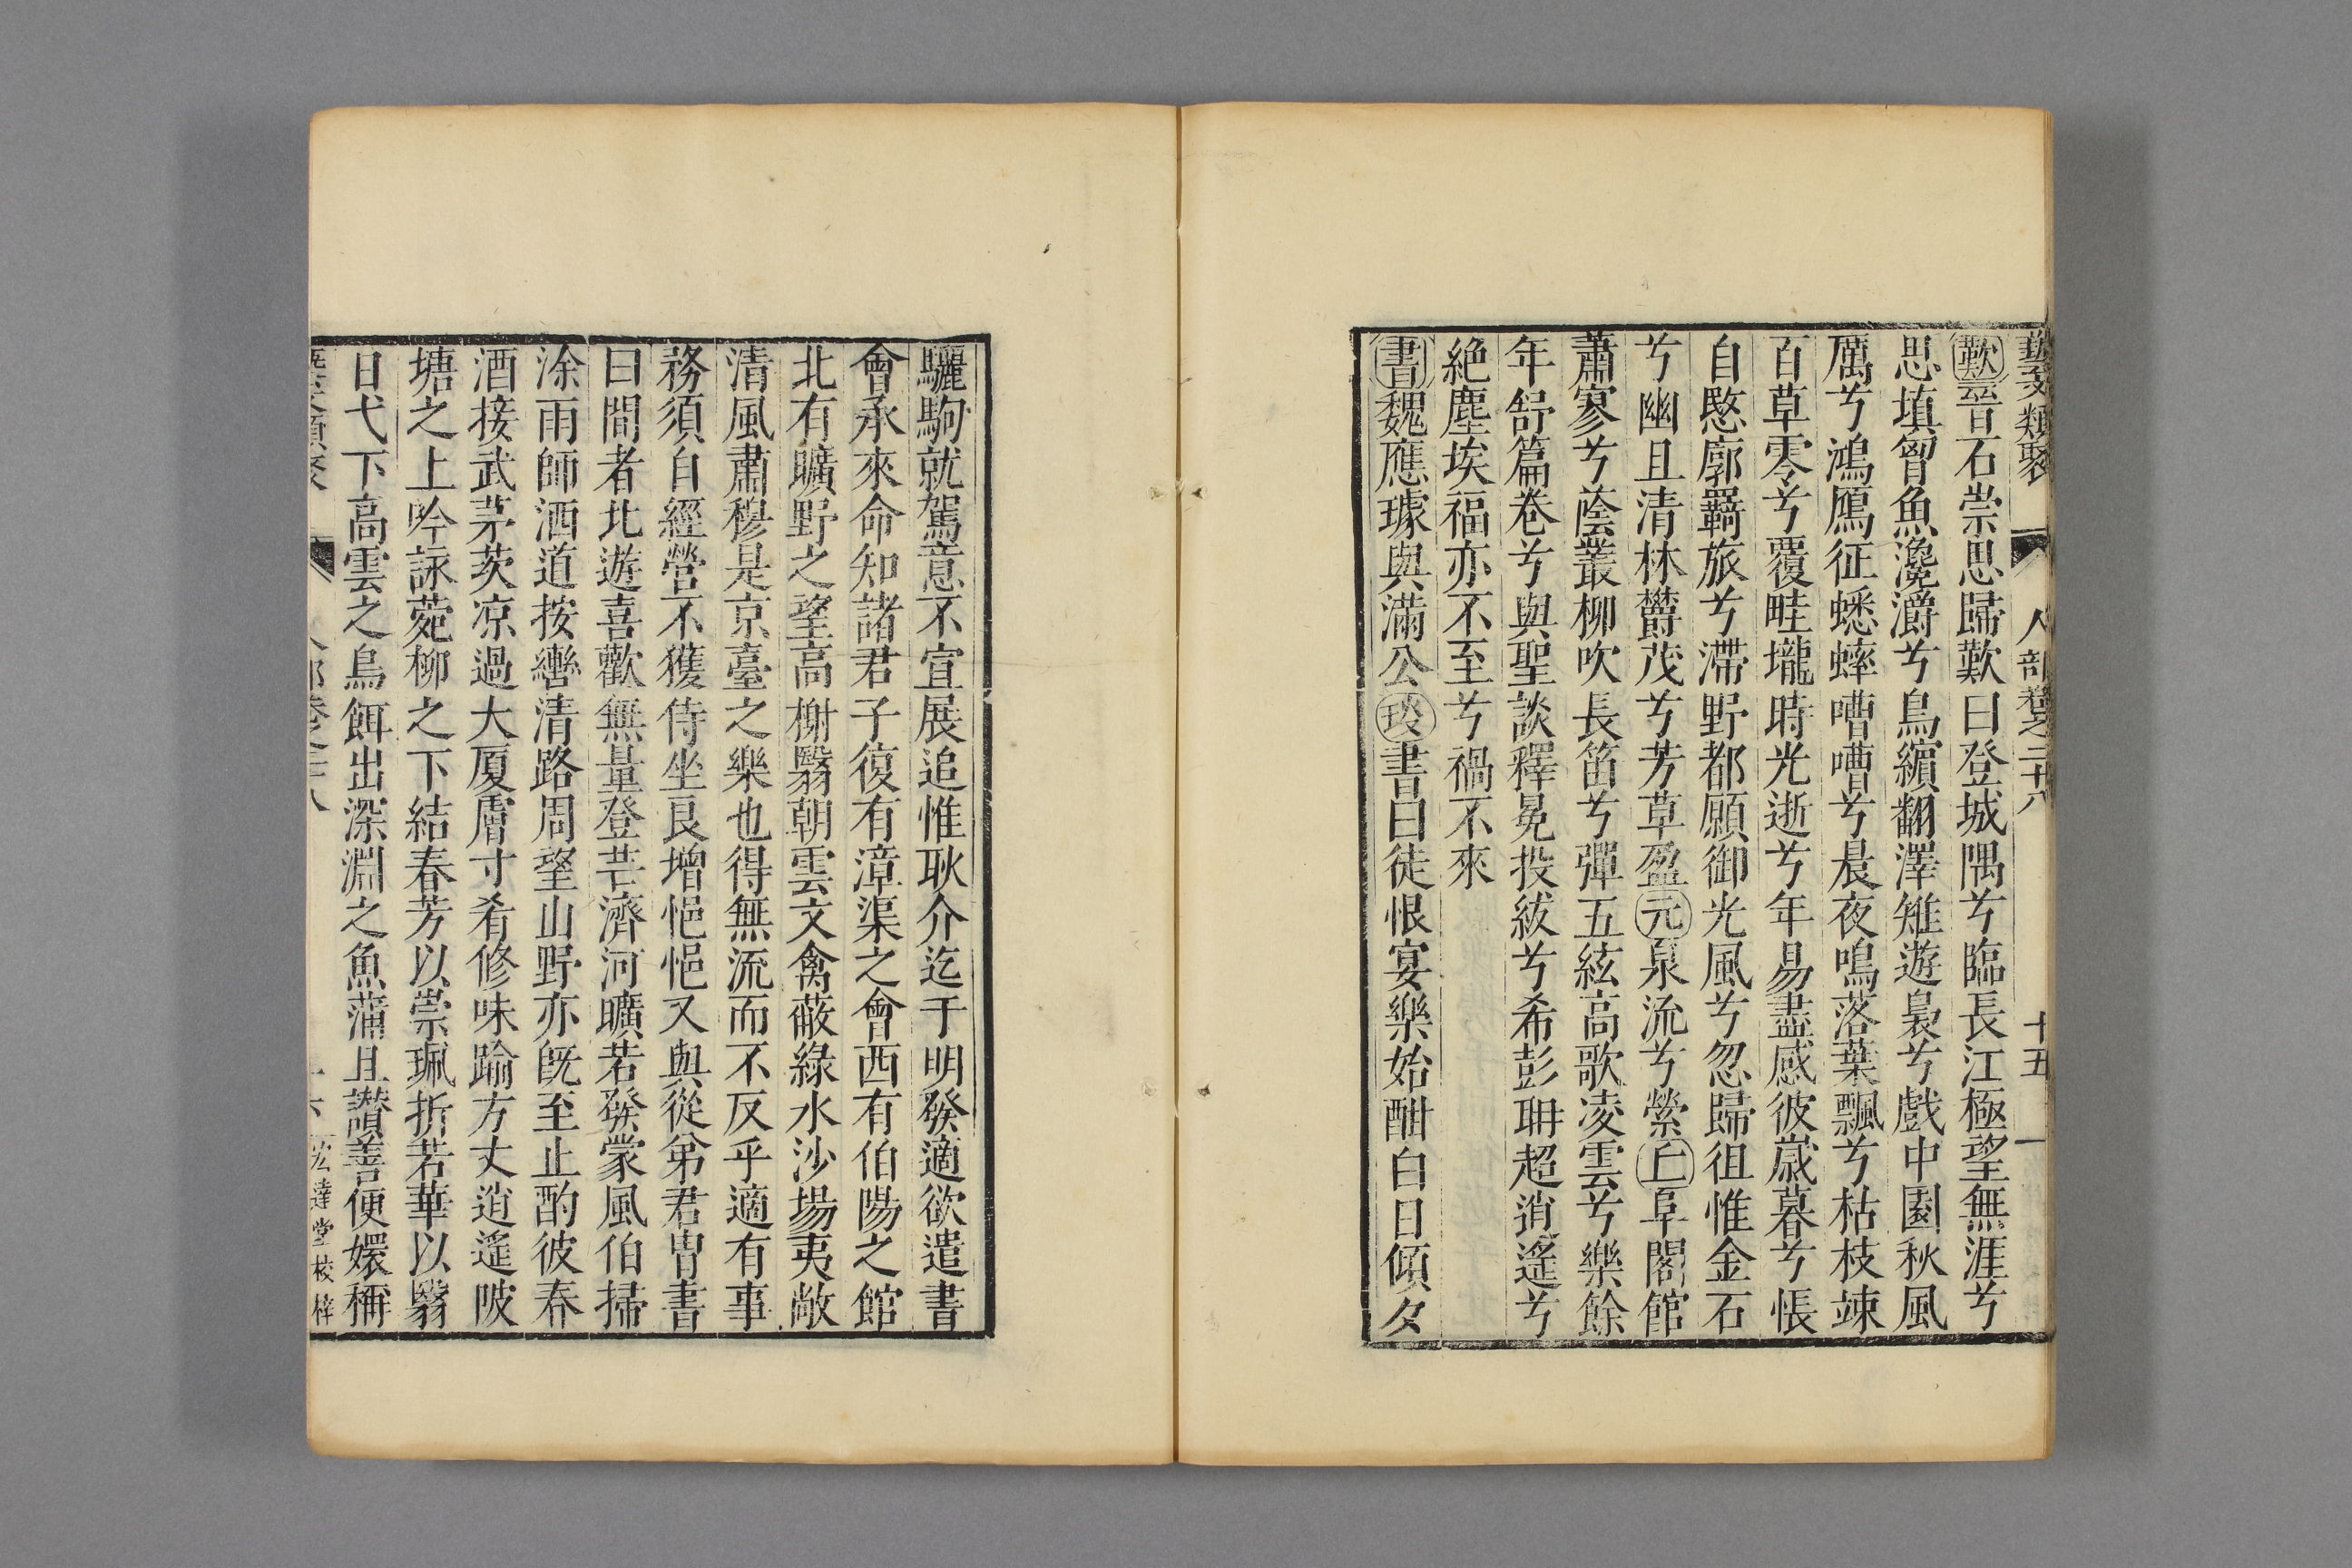 藝文類聚 人部卷之二十八 十五
歎晉石崇思歸歎曰登城隅兮臨長江極望無涯兮
思填胷魚瀺灂兮鳥繽翻澤雉遊鳧兮戲中園秋風
厲兮鴻鴈征蟋蟀嘈嘈兮晨夜鳴落葉飄兮枯枝竦
百草零兮覆畦壠時光逝兮年易盡感彼歲暮兮悵
自愍廓羇旅兮滯野都願御光風兮忽歸徂惟金石
兮幽且清林欝茂兮芳草盈元泉流兮縈丘阜閣館
蕭寥兮蔭叢柳吹長笛兮彈五絃高歌凌雲兮樂餘
年舒篇卷兮與聖談釋冕投紱兮希彭聃超逍遙兮
絶塵埃福亦不至兮禍不來
書魏應璩與滿公琰書曰徒恨宴樂始酣白日傾夕
驪駒就駕意不宣展追惟耿介迄于明發適欲遣書
會承來命知諸君子復有漳渠之會西有伯陽之館
北有曠野之望高榭翳朝雲文禽蔽綠水沙場夷敞
清風肅穆是京臺之樂也得無流而不反乎適有事
務須自經營不獲侍坐良增悒悒又與從弟君冑書
曰間者北遊喜歡無量登芒濟河曠若發蒙風伯掃
涂雨師洒道按轡清路周望山野亦既至止酌彼春
酒接武茅茨凉過大厦膚寸肴修味踰方丈逍遙陂
塘之上吟詠菀柳之下結春芳以崇珮折若華以翳
日弋下高雲之鳥餌出深淵之魚蒲且讃善便嬛稱
宏達堂校梓